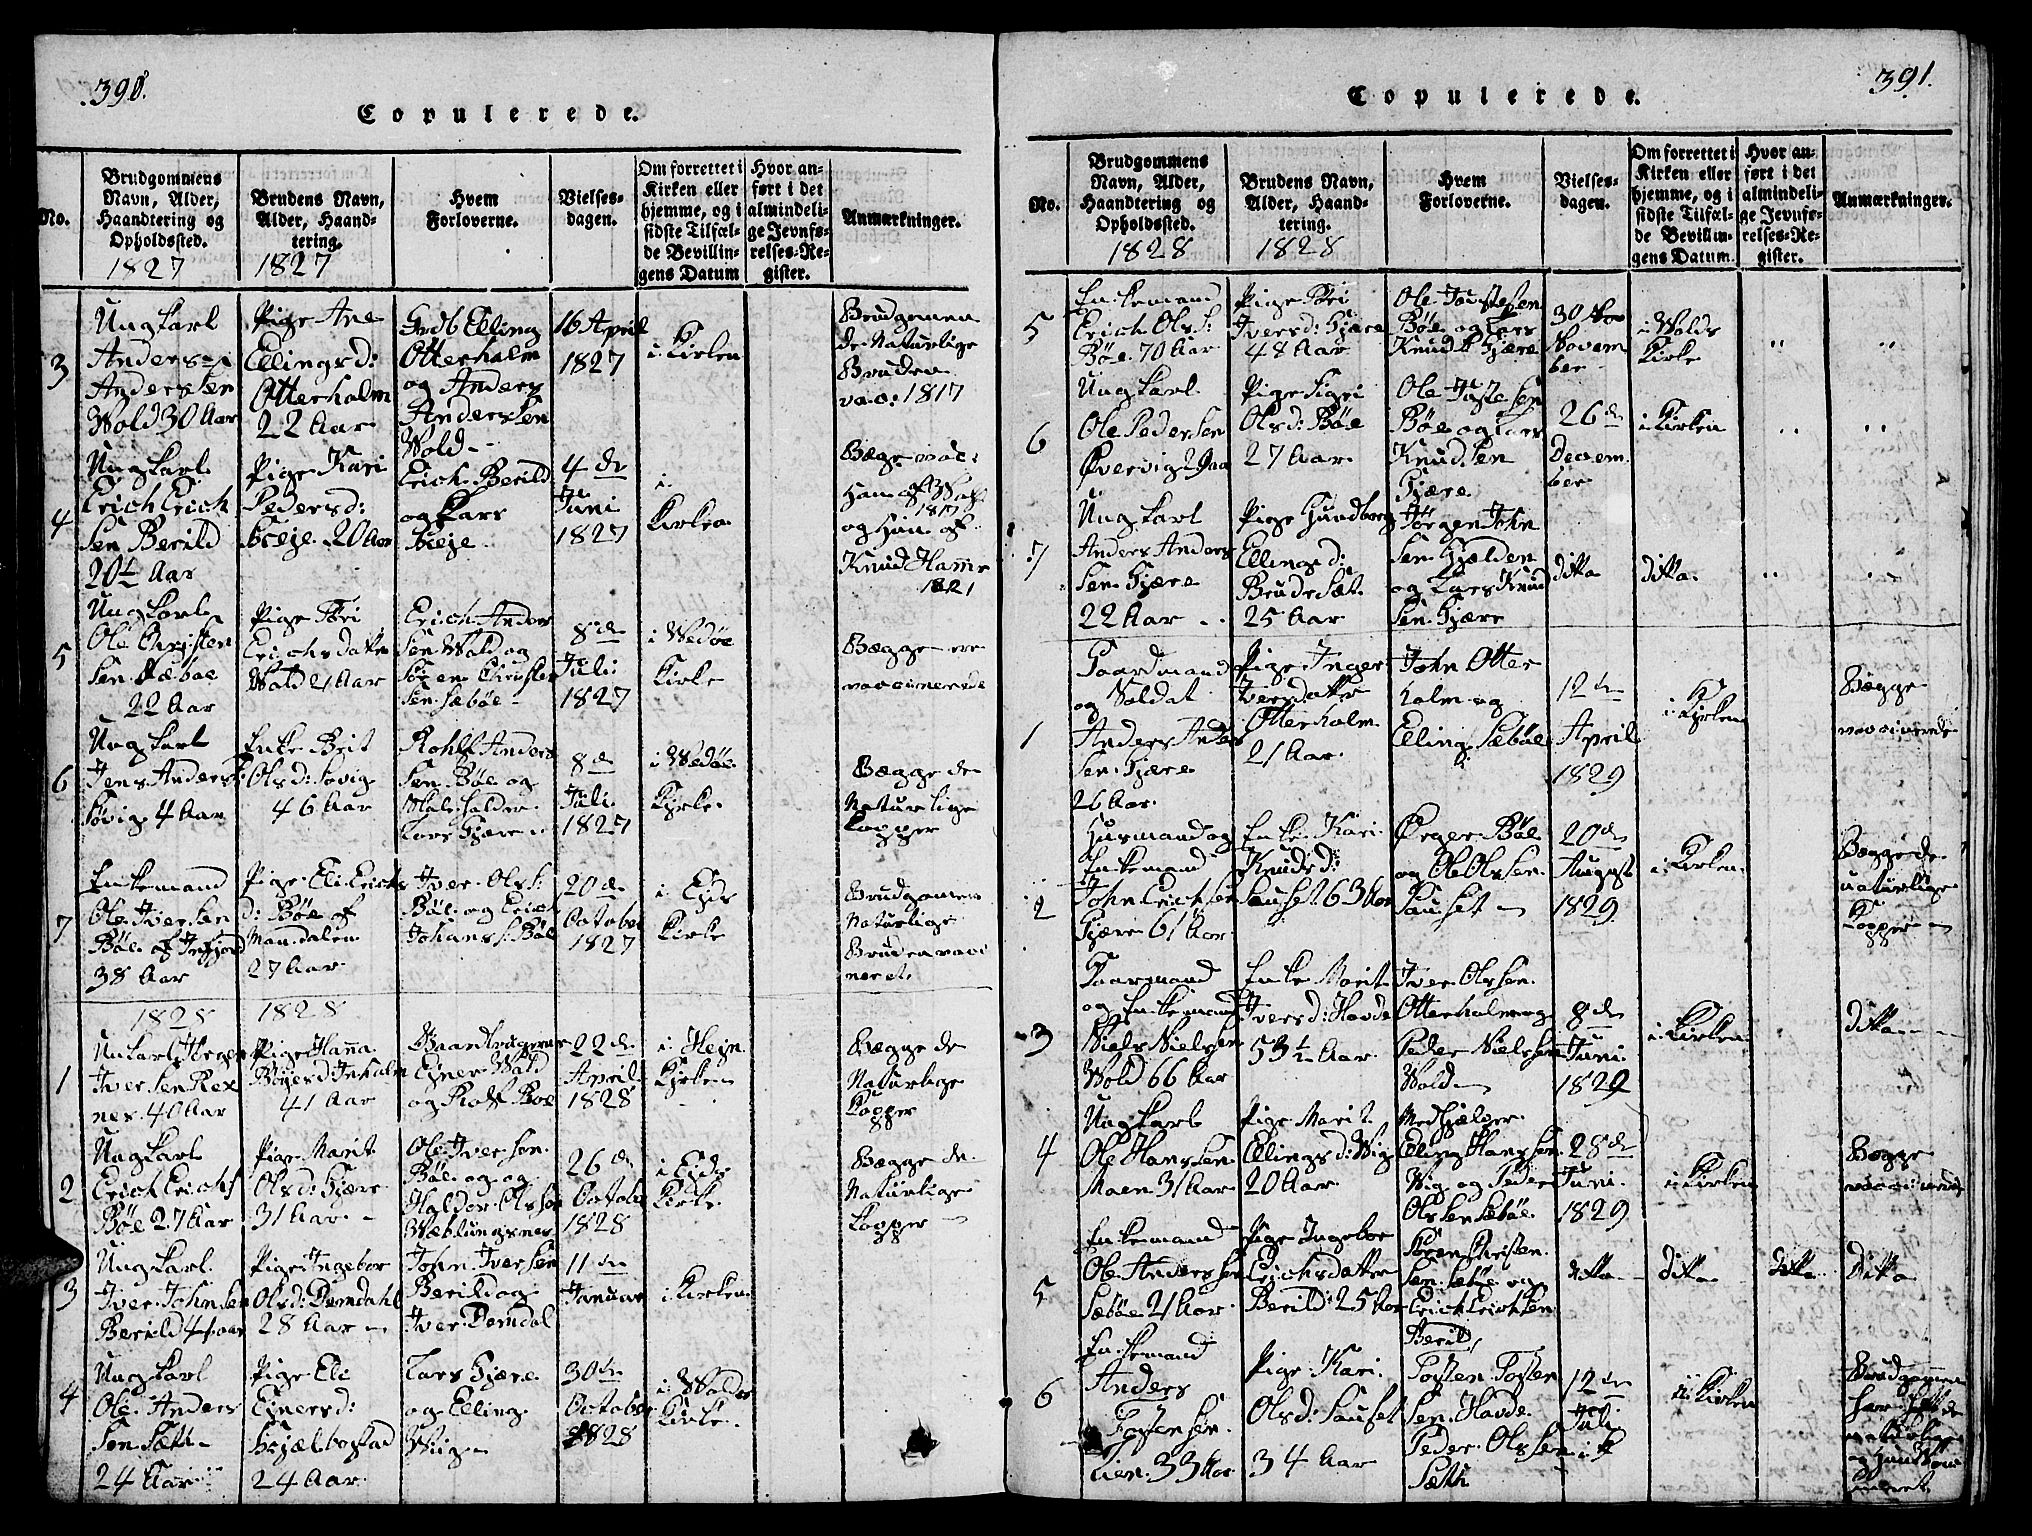 390.
Copulerede.
No.
Brudgommens Navn, Alder, Haandtering og Opholdssted.
1827
Brudens Navn, Alder, Haandtering.
1827
Hvem Forloverne.
Vielsesdagen.
Om forrettet i Kirken eller hjemme, og i sidste Tilfælde Bevillingens Datum
Hvor anført i det almindelige Jevnførelses-Register.
Anmærkninger.
3
Ungkarl
Anders
Anderssen
Wold 30 Aar
Pige Ane
Ellingsd:
Otterholm
22 Aar
Grdb Elling
Otterholm
og Anders
Anderssen
Wold
16 April
1827
i Kirken
Brudgomen
De Naturlige
Bruden
vac: 1817
4
Ungkarl
Erich Erich
sen Berild
20½ Aar
Pige Kari
Pedersd:
20 Aar
Erich Berild
og Lars
4de
Juni
1827
i
Kirken
Bægge vac:
1817
og Hun af
Knud Hamr
1821
5
Ungkarl
Ole Christen
sen Sæboe
22 Aar
Pige Töri
Erichsdatter
Wold 21 Aar
Erich Anders
sen Wold og
Sören Christen
sen Sæböe
8de
Juli
1827
i Wedöe
Kirke
Bægge ere
vaccinerede
6
Ungkarl
Jens Anders
Sövig 4 Aar
Enke Brit
Olsd: Sövig
46 Aar
Rohlf Anders
sen Böe og
Lars Gjære
8de
Juli
1827
i Wedöe
Kirke
Bægge de
Naturlige
Kopper
7
Enkemand
Ole Iversen
Böe af
38 Aar
Pige Eli Erichs
d: Böe af
Mandalen
27 Aar
Iver Olss:
Böe og Erich
Johanss: Böe
20de
October
1827
i Eids
Kirke
Brudgomen
Naturlige
Bruden vacci
neret
1828
1828
1
Unkarl Jörgen
Iversen Rex
nes 40 Aar
Pige Hanna
41 Aar
Ejner Wold
og Rolf Boe
22de
April
1828
i Hejn
Kirken
Bægge de
Naturlige
Kopper
2
Ungkarl
Erich Erichs
Böe 27 Aar
Pige Marit
Olsd: Gjære
31 Aar
Ole Iversen
Böe og
Haldor Olssen
Wæblungsnes
26de
Octobr
1828
i Eids
Kirke
Bægge de
Naturlige
Kopper
3
Ungkarl
Iver Johnsen
Berild
Pige Ingebor
Olsd: Dömdahl
28 Aar
John Iversen
Berild og
Iver Dömdal
11te
Januar
i Kirken
4
Ungkarl
Ole Anders
sen Sætt
24 Aar
Pige Eli
Ejnersd:
Hjelbostad
24 Aar
Lars Gjære
og Elling
Wiig
30te
October
1828
i Wolds
Kirke
391.
Copulerede.
No.
Brudgommens Navn, Alder, Haandtering og Opholdssted.
1828
Brudens Navn, Alder, Haandtering.
1828
Hvem Forloverne.
Vielsesdagen.
Om forrettet i Kirken eller hjemme, og i sidste Tilfælde Bevillingens Datum.
Hvor anført i det almindelige Jevnførelses-Register.
Anmærkninger.
5
Enkemand
Erich Olss:
Böe 70 Aar
Pige Töri
Iversd: Gjære
48 Aar
Ole Justesen
Böe og Lars
Knuds Gjære
30
Novem
ber
i Wolds
Kirke
"
"
6
Ungkarl
Ole Pedersen
Øvervig 29 Aar
Pige Sigri
Olsd: Böe
27 Aar
Ole Justesen
Böe og Lars
Knudsen
Gjære
26de
Decem
ber
i Kirken
"
"
7
Ungkarl
Anders Anders
sen Gjære
22 Aar
Pige Gundborg
Ellingsd:
Brudesæt
25 Aar
Jörgen John
sen Hjelden
og Lars Knud
sen Gjære
ditto
ditto
"
"
1
Gaardmand
og Soldat
Anders Anders
sen Gjære
26 Aar
Pige Inger
Iversdatter
Otterholm
21 Aar
John Otter
holm og
Elling Sæböe
12te
April
1829
i Kirken
Bægge
vaccinerede
2
Husmand og
Enkemand
John Erichsen
Gjære 61 Aar
Enke Kari
Knudsd:
Sauset 63 Aar
Böe
og Ole Olssen
Sauset
20de
August
1829
i Kirken
Bægge de
naturlige
Kopper
3
Gaarmand
og Enkemand
Niels Nielsen
Wold 66 Aar
Enke Marit
Iversd: Havde
53½ Aar
Iver Olssen
Otterholm og
Peder Nielssen
Wold
8de
Juni
1829
i Kirken
ditto
4
Ungkarl
Ole Hanssen
Moen 31 Aar
Pige Marit
Ellingsd: Wig
20 Aar
Medhjelper
Elling Hanssen
Wig og Peder
Olssen Sæböe
28de
Juni
1829
i Kirken
Bægge
vaccinerede
5
Enkemand
Ole Anderssen
Sæböe 21 Aar
Pige Ingebor
Erichsdatter
Berild 25 Aar
Sören Christen
sen Sæböe og
Erich Erichsen
Berild
ditto
ditto
ditto
ditto
6
Enkemand
Anders
Tostensen
Lien 33 Aar
Pige Kari
Olsd: Sauset
34 Aar
Tosten Tosten
sen Havde
Peder Olssen
Sæth
12te
Juli
i Kirken
Brudgomen
har havt de
naturlige